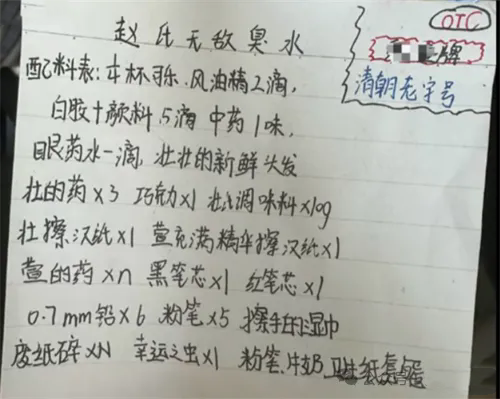 赵氏无敌臭水
OTC
牌
清朝老字号
配料表:半杯可乐.风油精2滴,
白胶+颜料.5滴 中药1味,
眼药水一滴,壮壮的新鲜头发
壮的药×3 巧克力×1 壮壮调味料×10g
壮擦汉纸×1 萱充满精华擦汉纸×1
萱的药×n 黑笔芯×1 红笔芯×1
0.7mm铅×6 粉笔×5 擦手的湿巾
废纸碎×N 幸运之虫×1 粉笔.牛奶 卫生纸